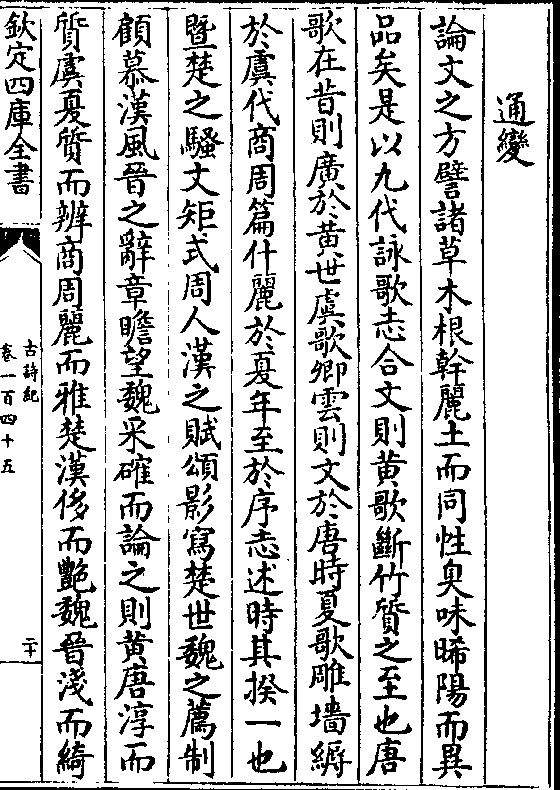 通變
論文之方譬諸草木根幹麗土而同性臭味晞陽而異
品矣是以九代詠歌志合文則黃歌斷竹質之至也唐
歌在昔則廣於黃世虞歌卿雲則文於唐時夏歌雕墻縟
於虞代商周篇什麗於夏年至於序志述時其揆一也
暨楚之騷文矩式周人漢之賦頌影寫楚世魏之薦制
顧慕漢風晉之辭章瞻望魏采確而論之則黃唐淳而
質虞夏質而辨商周麗而雅楚漢侈而艷魏晉淺而綺
欽定四庫全書
古詩紀
卷一百四十五
二十